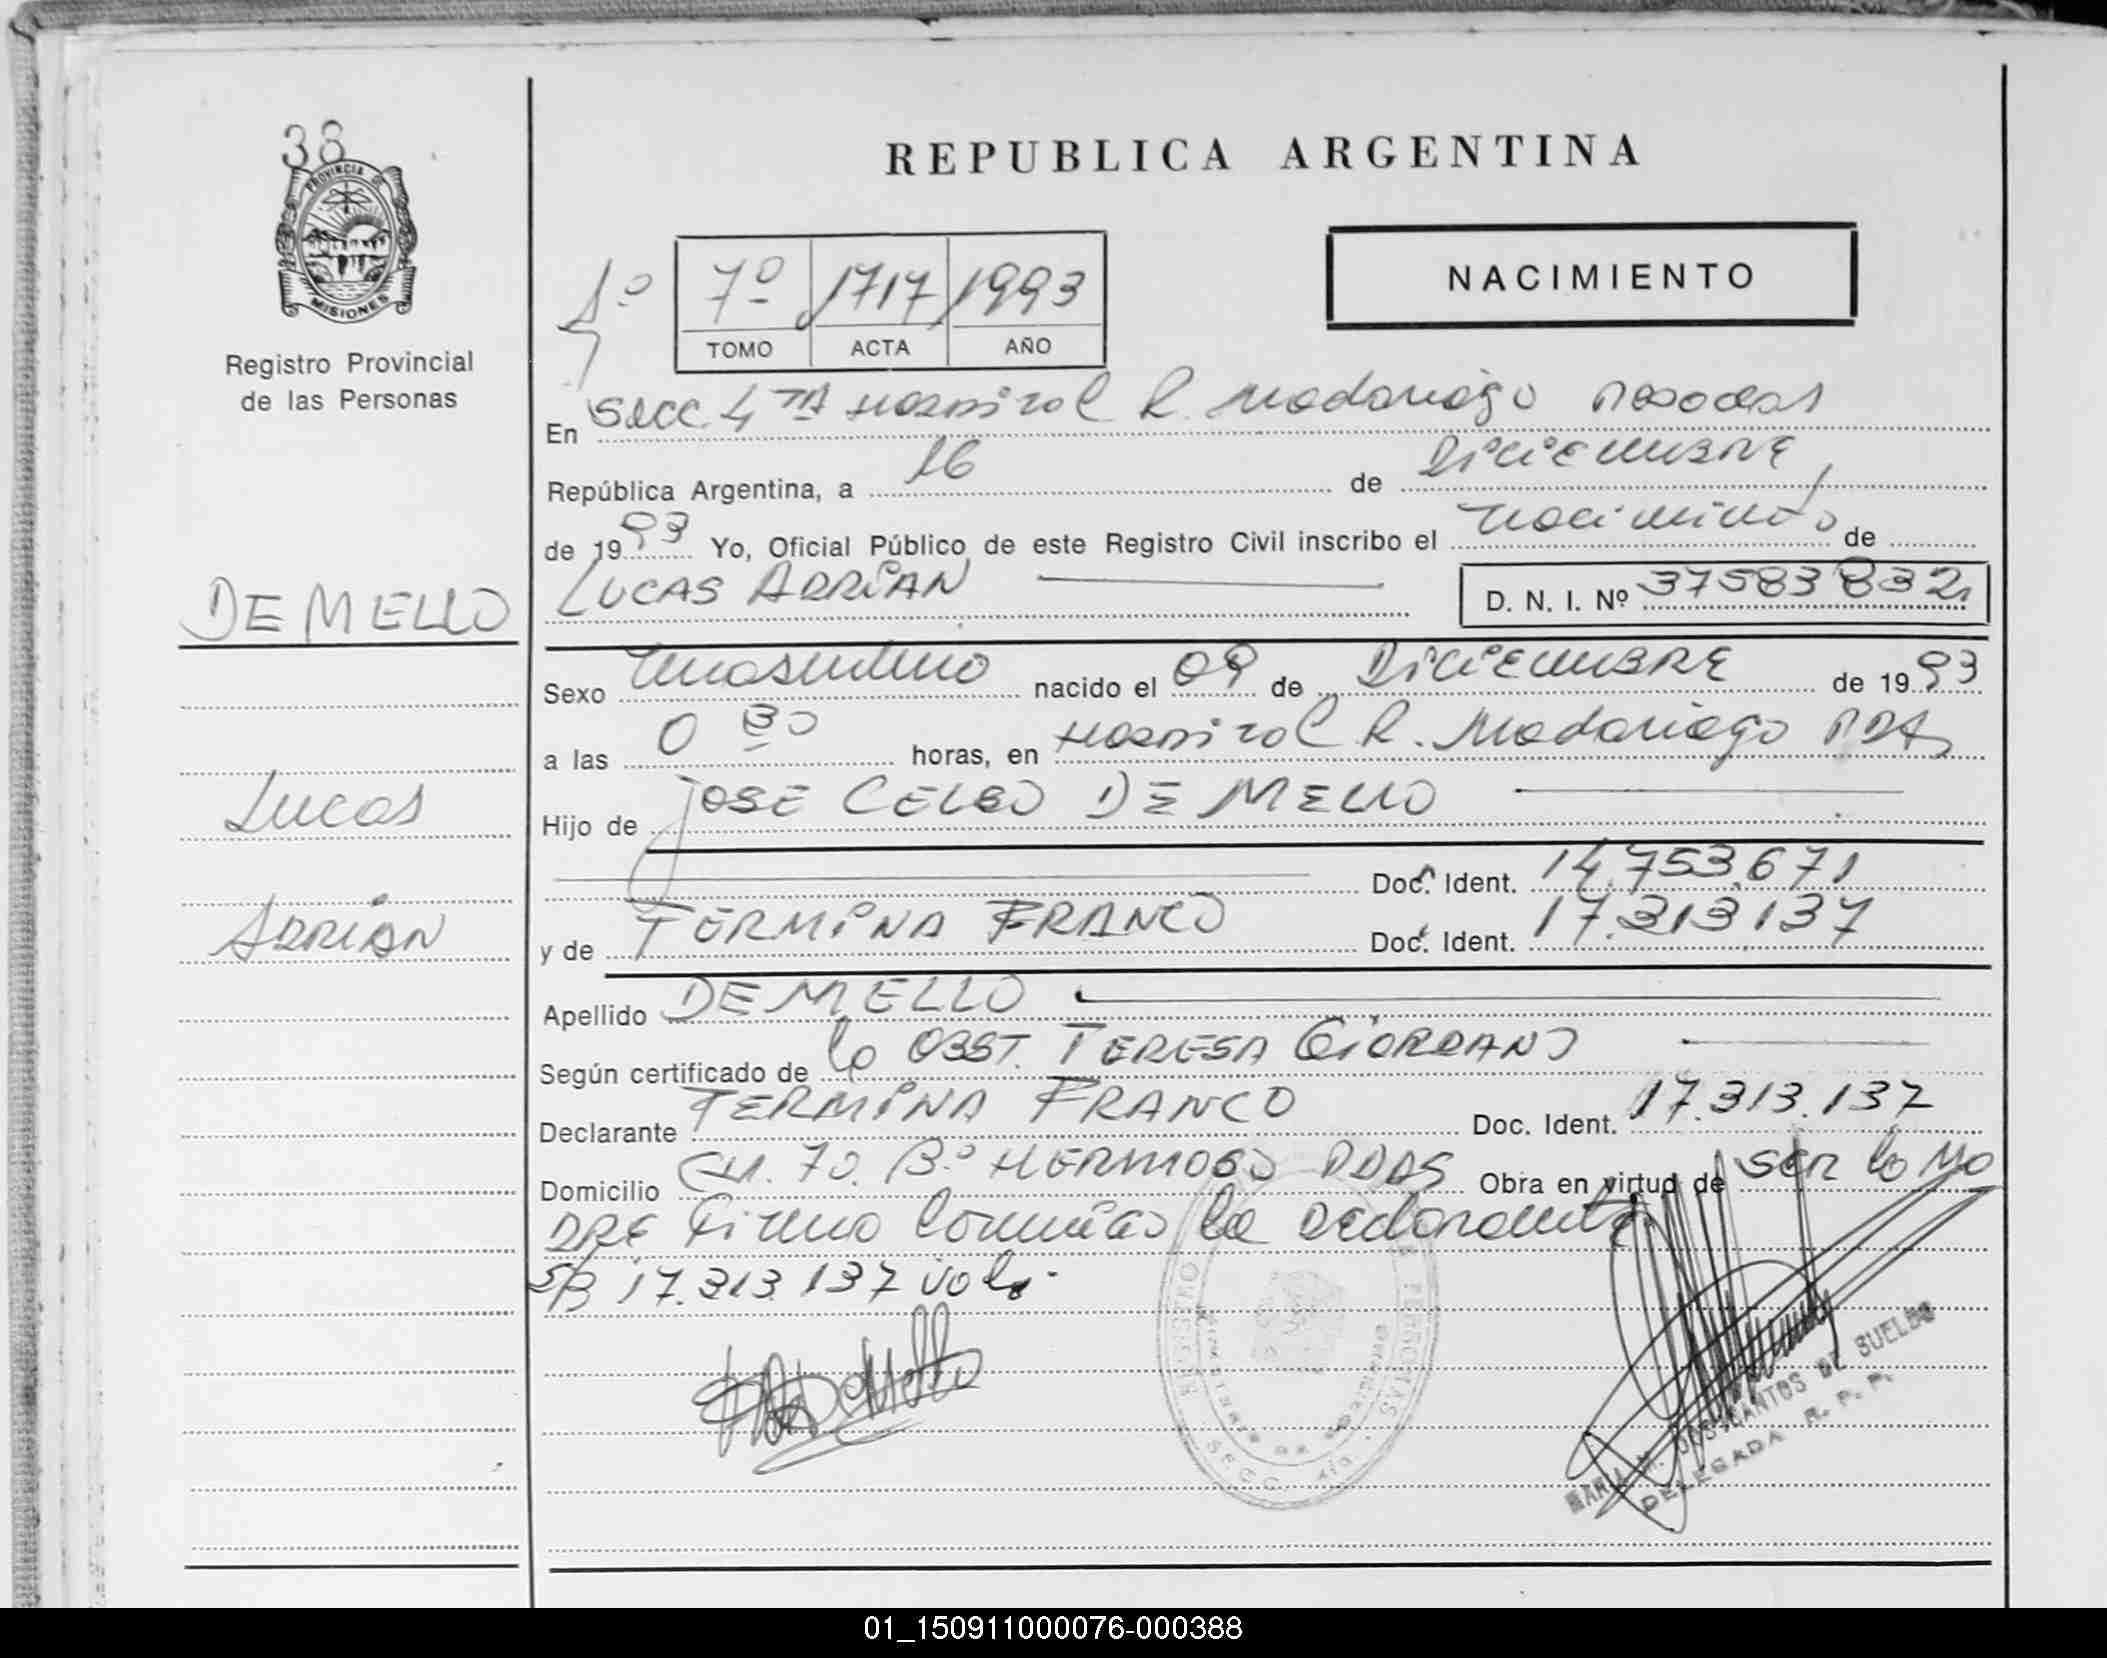 38
PROVINCIA DE
MISIONES
Registro Provincial
de las Personas
REPUBLICA ARGENTINA
NACIMIENTO
7º 1717 1993
TOMO ACTA AÑO
En Secc. 4TA Hospital R. Madariaga Posadas
República Argentina, a 16 de Diciembre
de 1993 Yo, Oficial Público de este Registro Civil inscribo el nacimiento de
DE MELLO
LUCAS ADRIAN D. N. I. Nº 37583832
Sexo masculino nacido el 09 de Diciembre de 1993
a las 0 30 horas, en Hospital R. Madariaga PDAS
Lucas
Hijo de JOSE CELSO DE MELLO
Doc. Ident. 14.753.671
Adrian
y de FERMINA FRANCO Doc. Ident. 17.313.137
Apellido DE MELLO
Según certificado de la OBST. TERESA GIORDANO
Declarante FERMINA FRANCO Doc. Ident. 17.313.137
Domicilio CH. 70. Bº HERMOSO PDAS Obra en virtud de ser la MA
DRE Firma conmigo la Declarante
S/B 17.313.137 vale
REGISTRO DE PERSONAS
SECC. 4ta.
MARIA M. DOS SANTOS DE SUELDO
DELEGADA R. P. P.
01_150911000076-000388